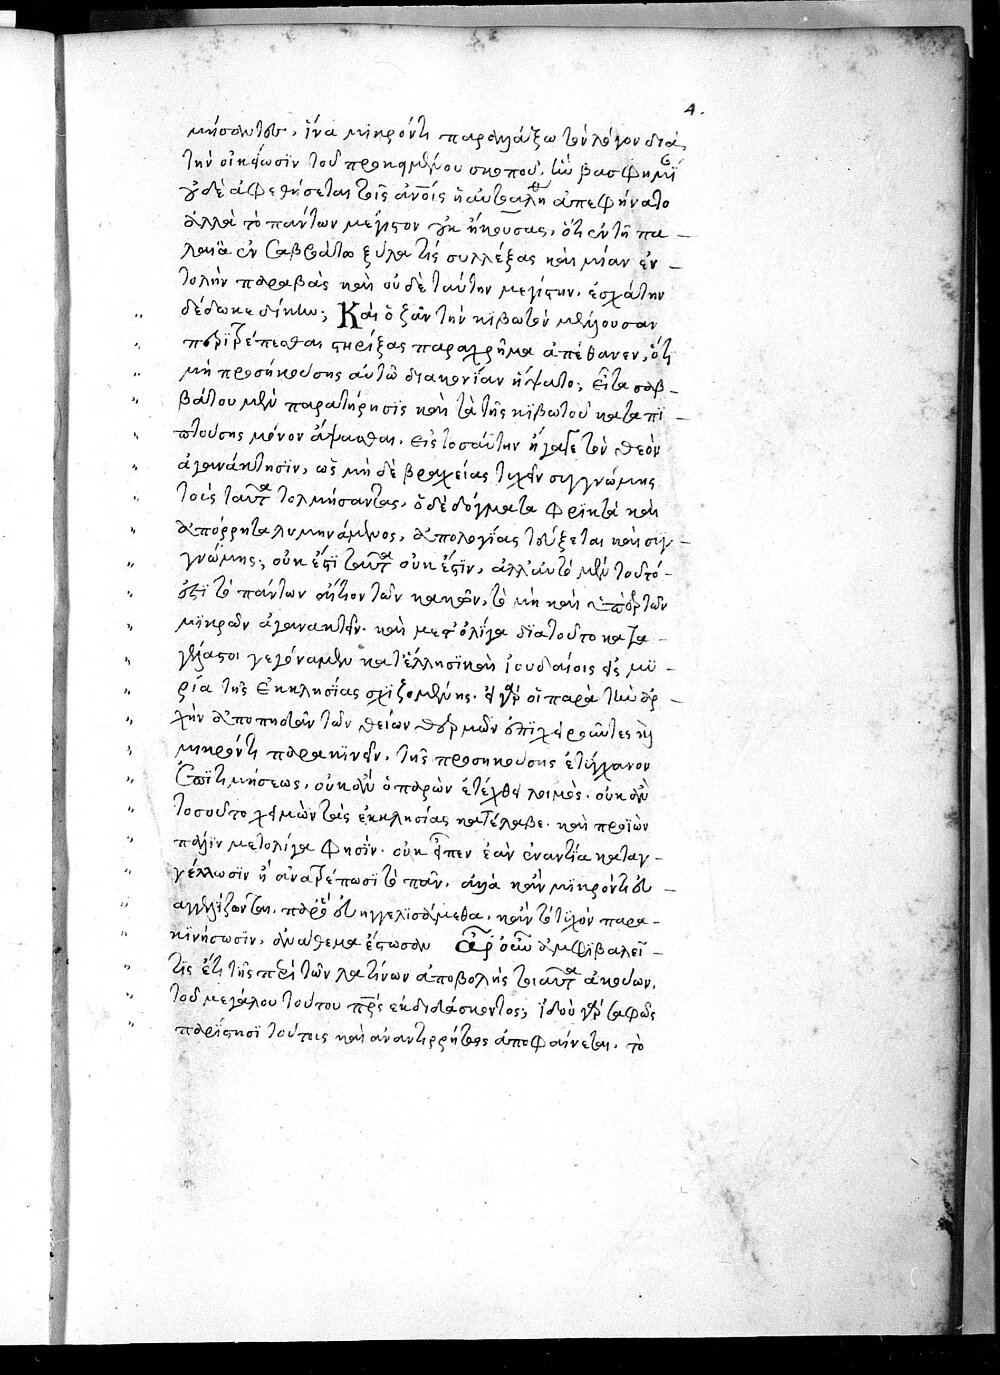 4.
μήσαντος. ἵνα μικρόν τι παραλλάξω τὸν λόγον διὰ
τὴν οἰκείωσιν τοῦ προκειμένου σκοποῦ. τῶ βλασφημεῖν
οὐδὲ ἀφεθήσεται τοῖς ἀνοις ἡ αὐτοαληθ ἀπεφήνατο
ἀλλὰ τὸ πάντων μέγιστον οὐκ ἤκουσας, ὅτι ἐν τῆ πα –
λαιᾶ ἐν σαββάτω ξύλα τίς συλλέξας καὶ μίαν ἐν –
τολὴν παραβὰς καὶ οὐδὲ ταύτην μεγίστην. ἐσχάτην
δέδωκε δίκην; Καὶ ὁ ζᾶν τὴν κιβωτὸν μέλλουσαν
περιτρέπεσθαι στηρίξας παραχρῆμα ἀπέθανεν, ὅτι
μὴ προσηκούσης αὐτῶ διακονίαν ἥψατο; εἶτα σαβ –
βάτου μὲν παρατήρησις καὶ τὸ τῆς κιβωτοῦ καταπι –
πτούσης μόνον ἅψασθαι. εἰς τοσαύτην ἤγαγε τὸν θεὸν
ἀγανάκτησιν, ὡς μὴ δὲ βραχείας τυχεῖν συγγνώμης
τοὺς ταῦτα τολμήσαντας. ὁ δὲ δόγματα φρικτὰ καὶ
ἀπόρρητα λυμηνάμενος, ἀπολογίας τεύξεται καὶ συγ –
γνώμης; οὐκ ἔστι ταῦτα οὐκ ἔστιν. ἀλλ' αὐτὸ μὲν τοῦτό –
ἐστι τὸ πάντων αἴτιον τῶν κακῶν, τὸ μὴ καὶ ὑπὲρ τῶν
μικρῶν ἀγανακτεῖν. καὶ μετ' ὀλίγα διατοῦτο καταγέ –
λαστοι γεγόναμεν καὶ ἕλλησι καὶ ἰουδαίοις εἰς μυ –
ρία τῆς ἐκκλησίας σχιζομένης. εἰ γὰρ οἱ παρὰ τὴν ἀρ –
χὴν ἀποπηδᾶν τῶν θείων θεσμῶν ἐπιχειροῦντες καὶ
μικρόν τι παρακινεῖν. τῆς προσηκούσης ἐτύγχανον
ἐπιτιμήσεως, οὐκ ἂν ὁ παρὼν ἐτέχθη λοιμός. οὐκ ἂν
τοσοῦτο χειμὼν τὰς ἐκκλησίας κατέλαβε. καὶ προϊὼν
πάλιν μετολίγα φησίν. οὐκ εἶπεν ἐὰν ἐναντία καταγ –
γέλλωσιν ἢ ἀνατρέπωσι τὸ πᾶν. ἀλλὰ κἂν μικρόν τι εὐ –
αγγελίζωνται. παρ' ὃ εὐηγγελισάμεθα. κἂν τὸ τυχὸν παρα –
κινήσωσιν. ἀνάθεμα ἔστωσαν ἆρ' οὖν ἀμφιβαλεῖ –
τίς ἔτι τῆς περὶ τῶν λατίνων ἀποβολῆς τοιαῦτα ἀκούων,
τοῦ μεγάλου τούτου πρς ἐκδιδάσκοντος; ἰδοὺ γὰρ σαφῶς
παρίστησι τούτοις καὶ ἀναντιρρήτως ἀποφαίνεται. τὸ